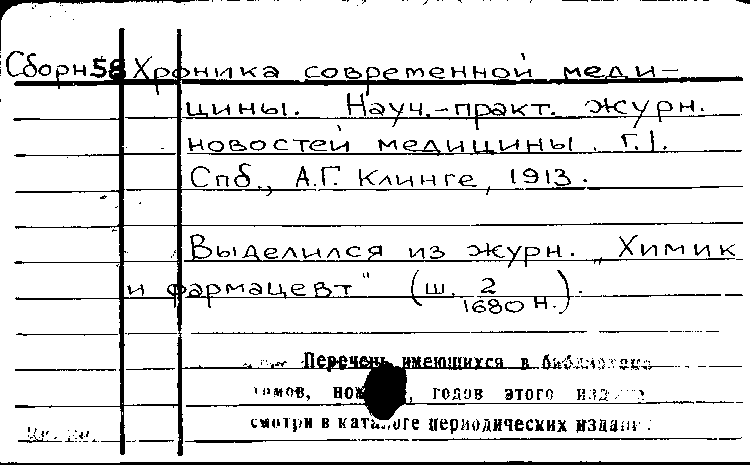 Сборн58 Хроника современной меди-
цины. Науч.-практ. журн.
новостей медицины. Г.1.
Спб., А.Г. Клинге, 1913.
Выделился из журн. „Химик
и фармацевт" (ш. 2/1680 н.).
Перечень имеющихся в библиотеке
томов, годов этого издания
смотри в каталоге периодических изданий.